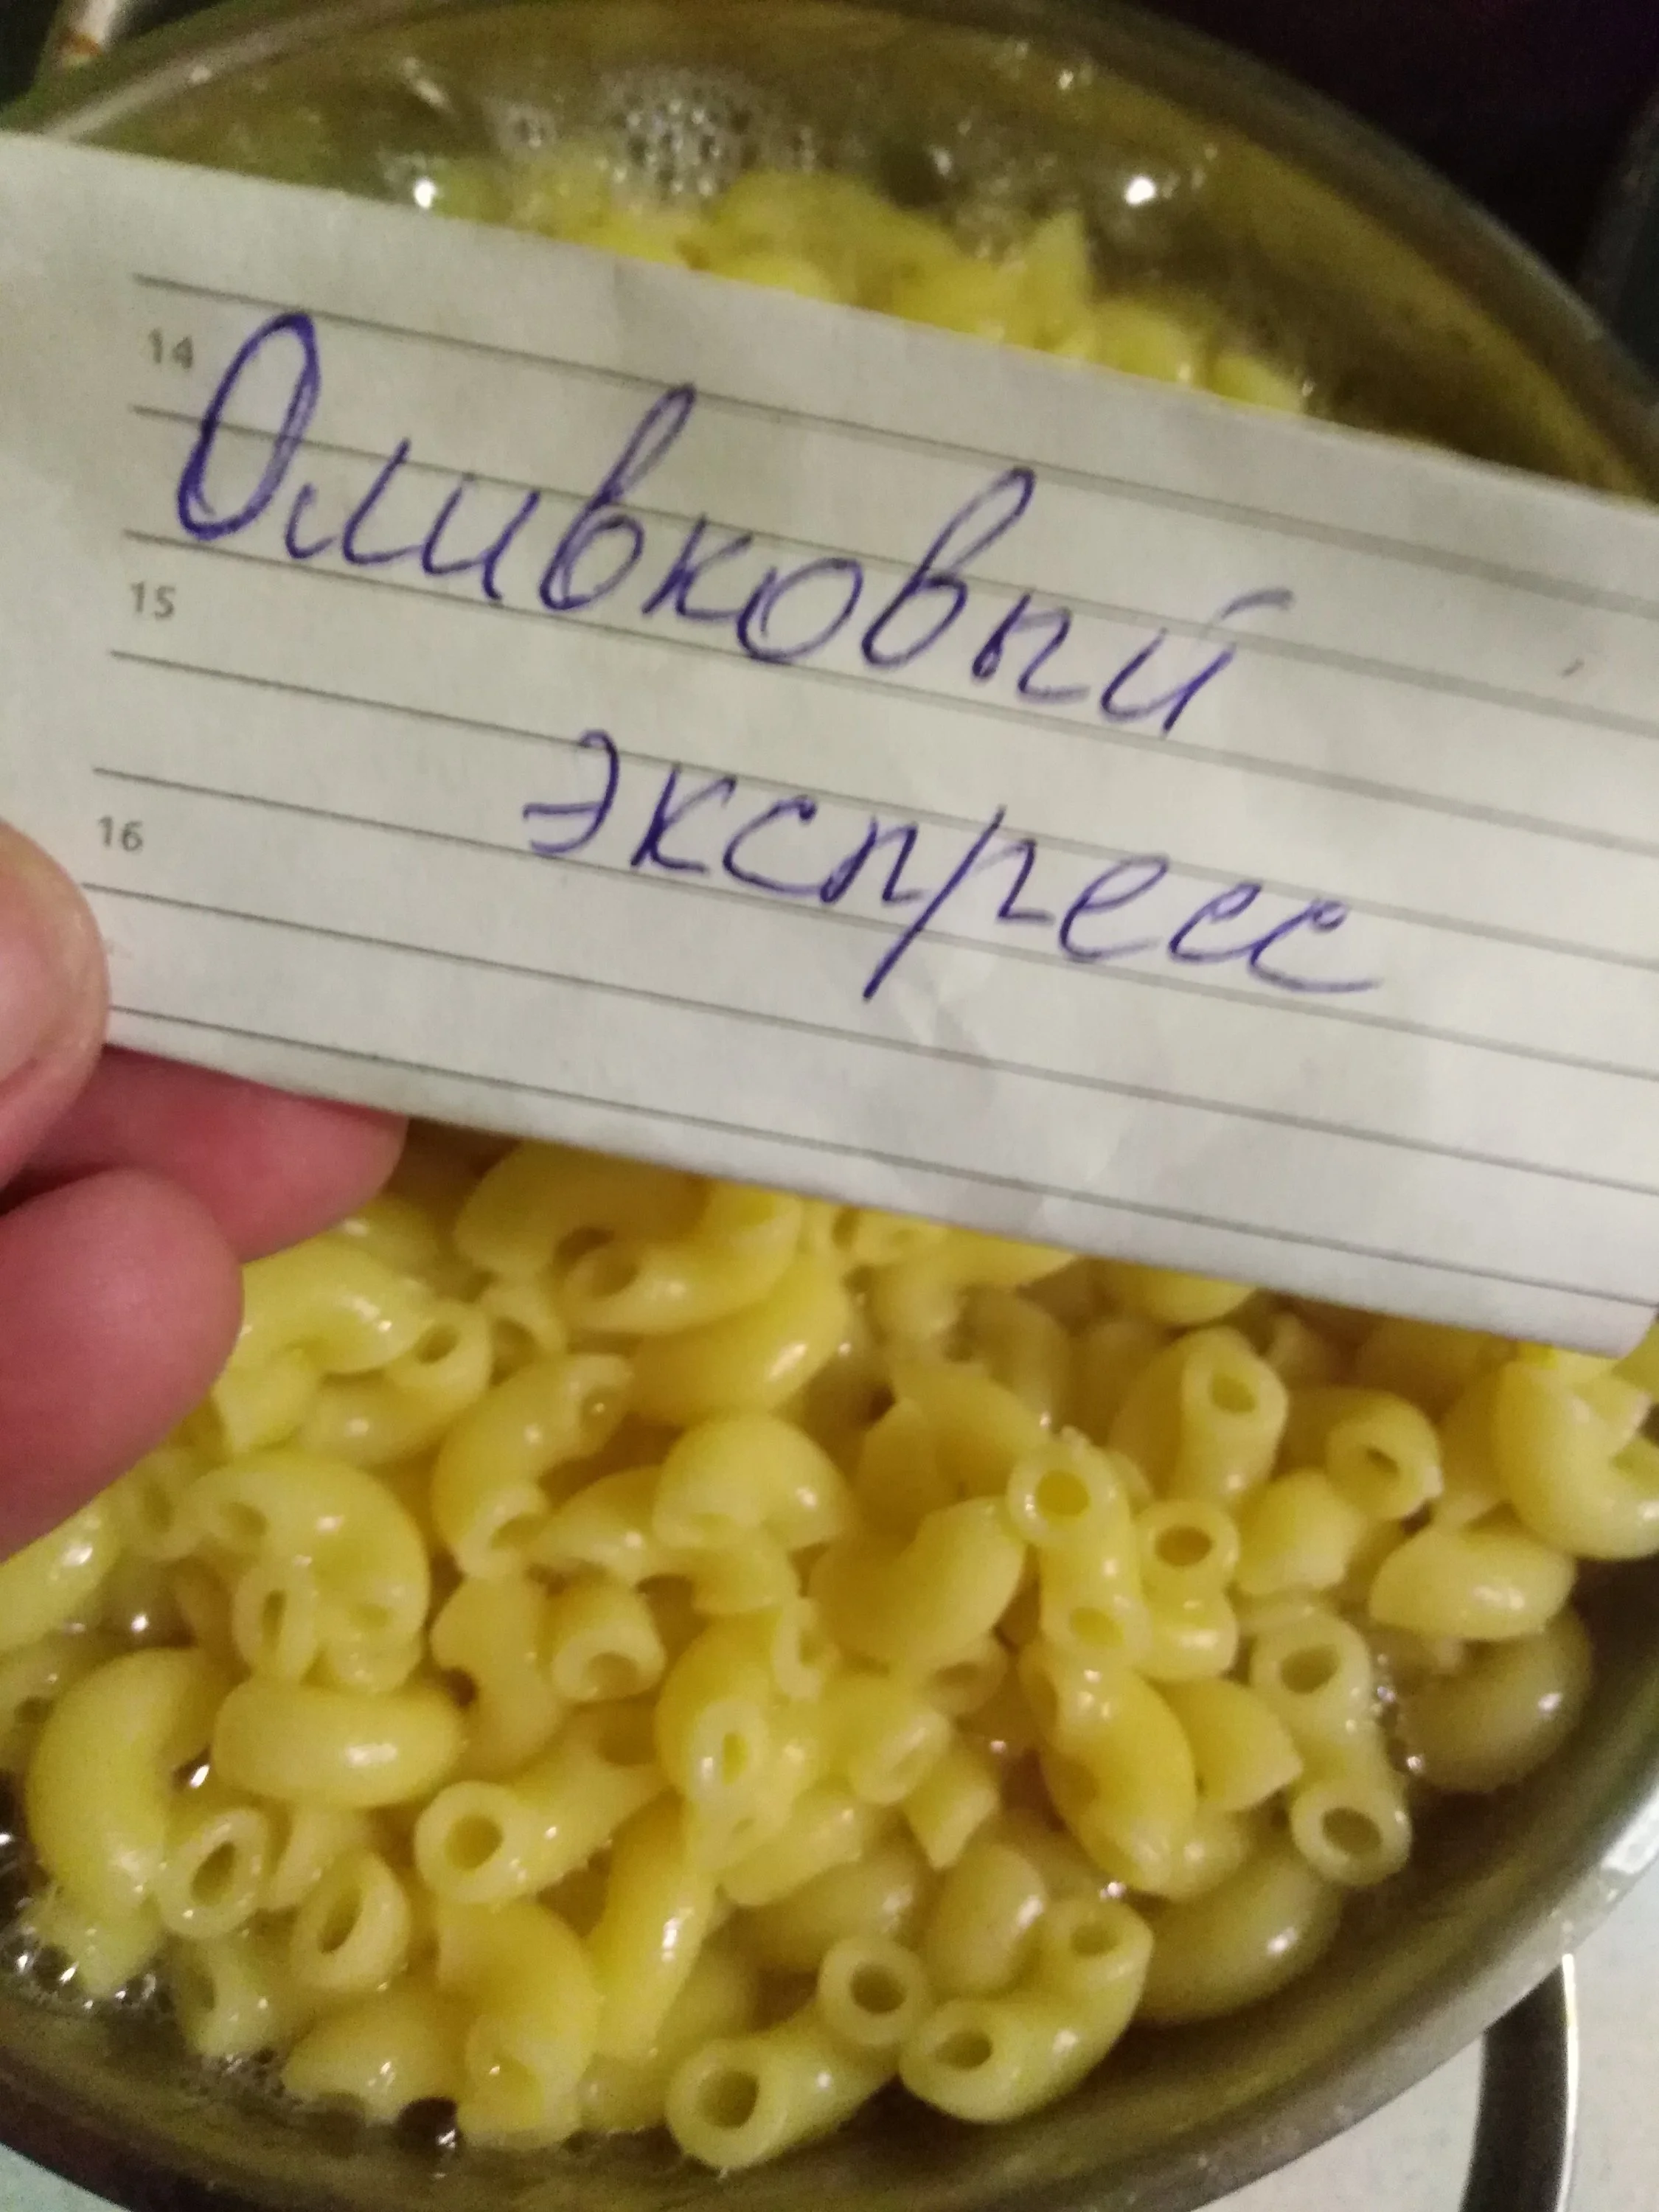 14
Оливковый
15
экспресс
16